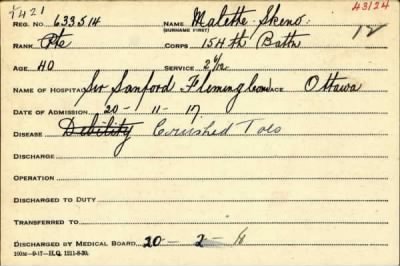 T421 43124
REG. NO. 633514 NAME Malette Skeno.
(SURNAME FIRST) 12
RANK Pte CORPS 154th Battn
AGE 40 SERVICE 2 6/12
NAME OF HOSPITAL Sir Sanford Fleming PLACE Ottawa
DATE OF ADMISSION 20 - 11 - 17
DISEASE Debility Crushed Toes
DISCHARGE
OPERATION
DISCHARGED TO DUTY
TRANSFERRED TO
DISCHARGED BY MEDICAL BOARD 20 - 2 - 18
100M-9-17-H.Q. 1211-8-30.